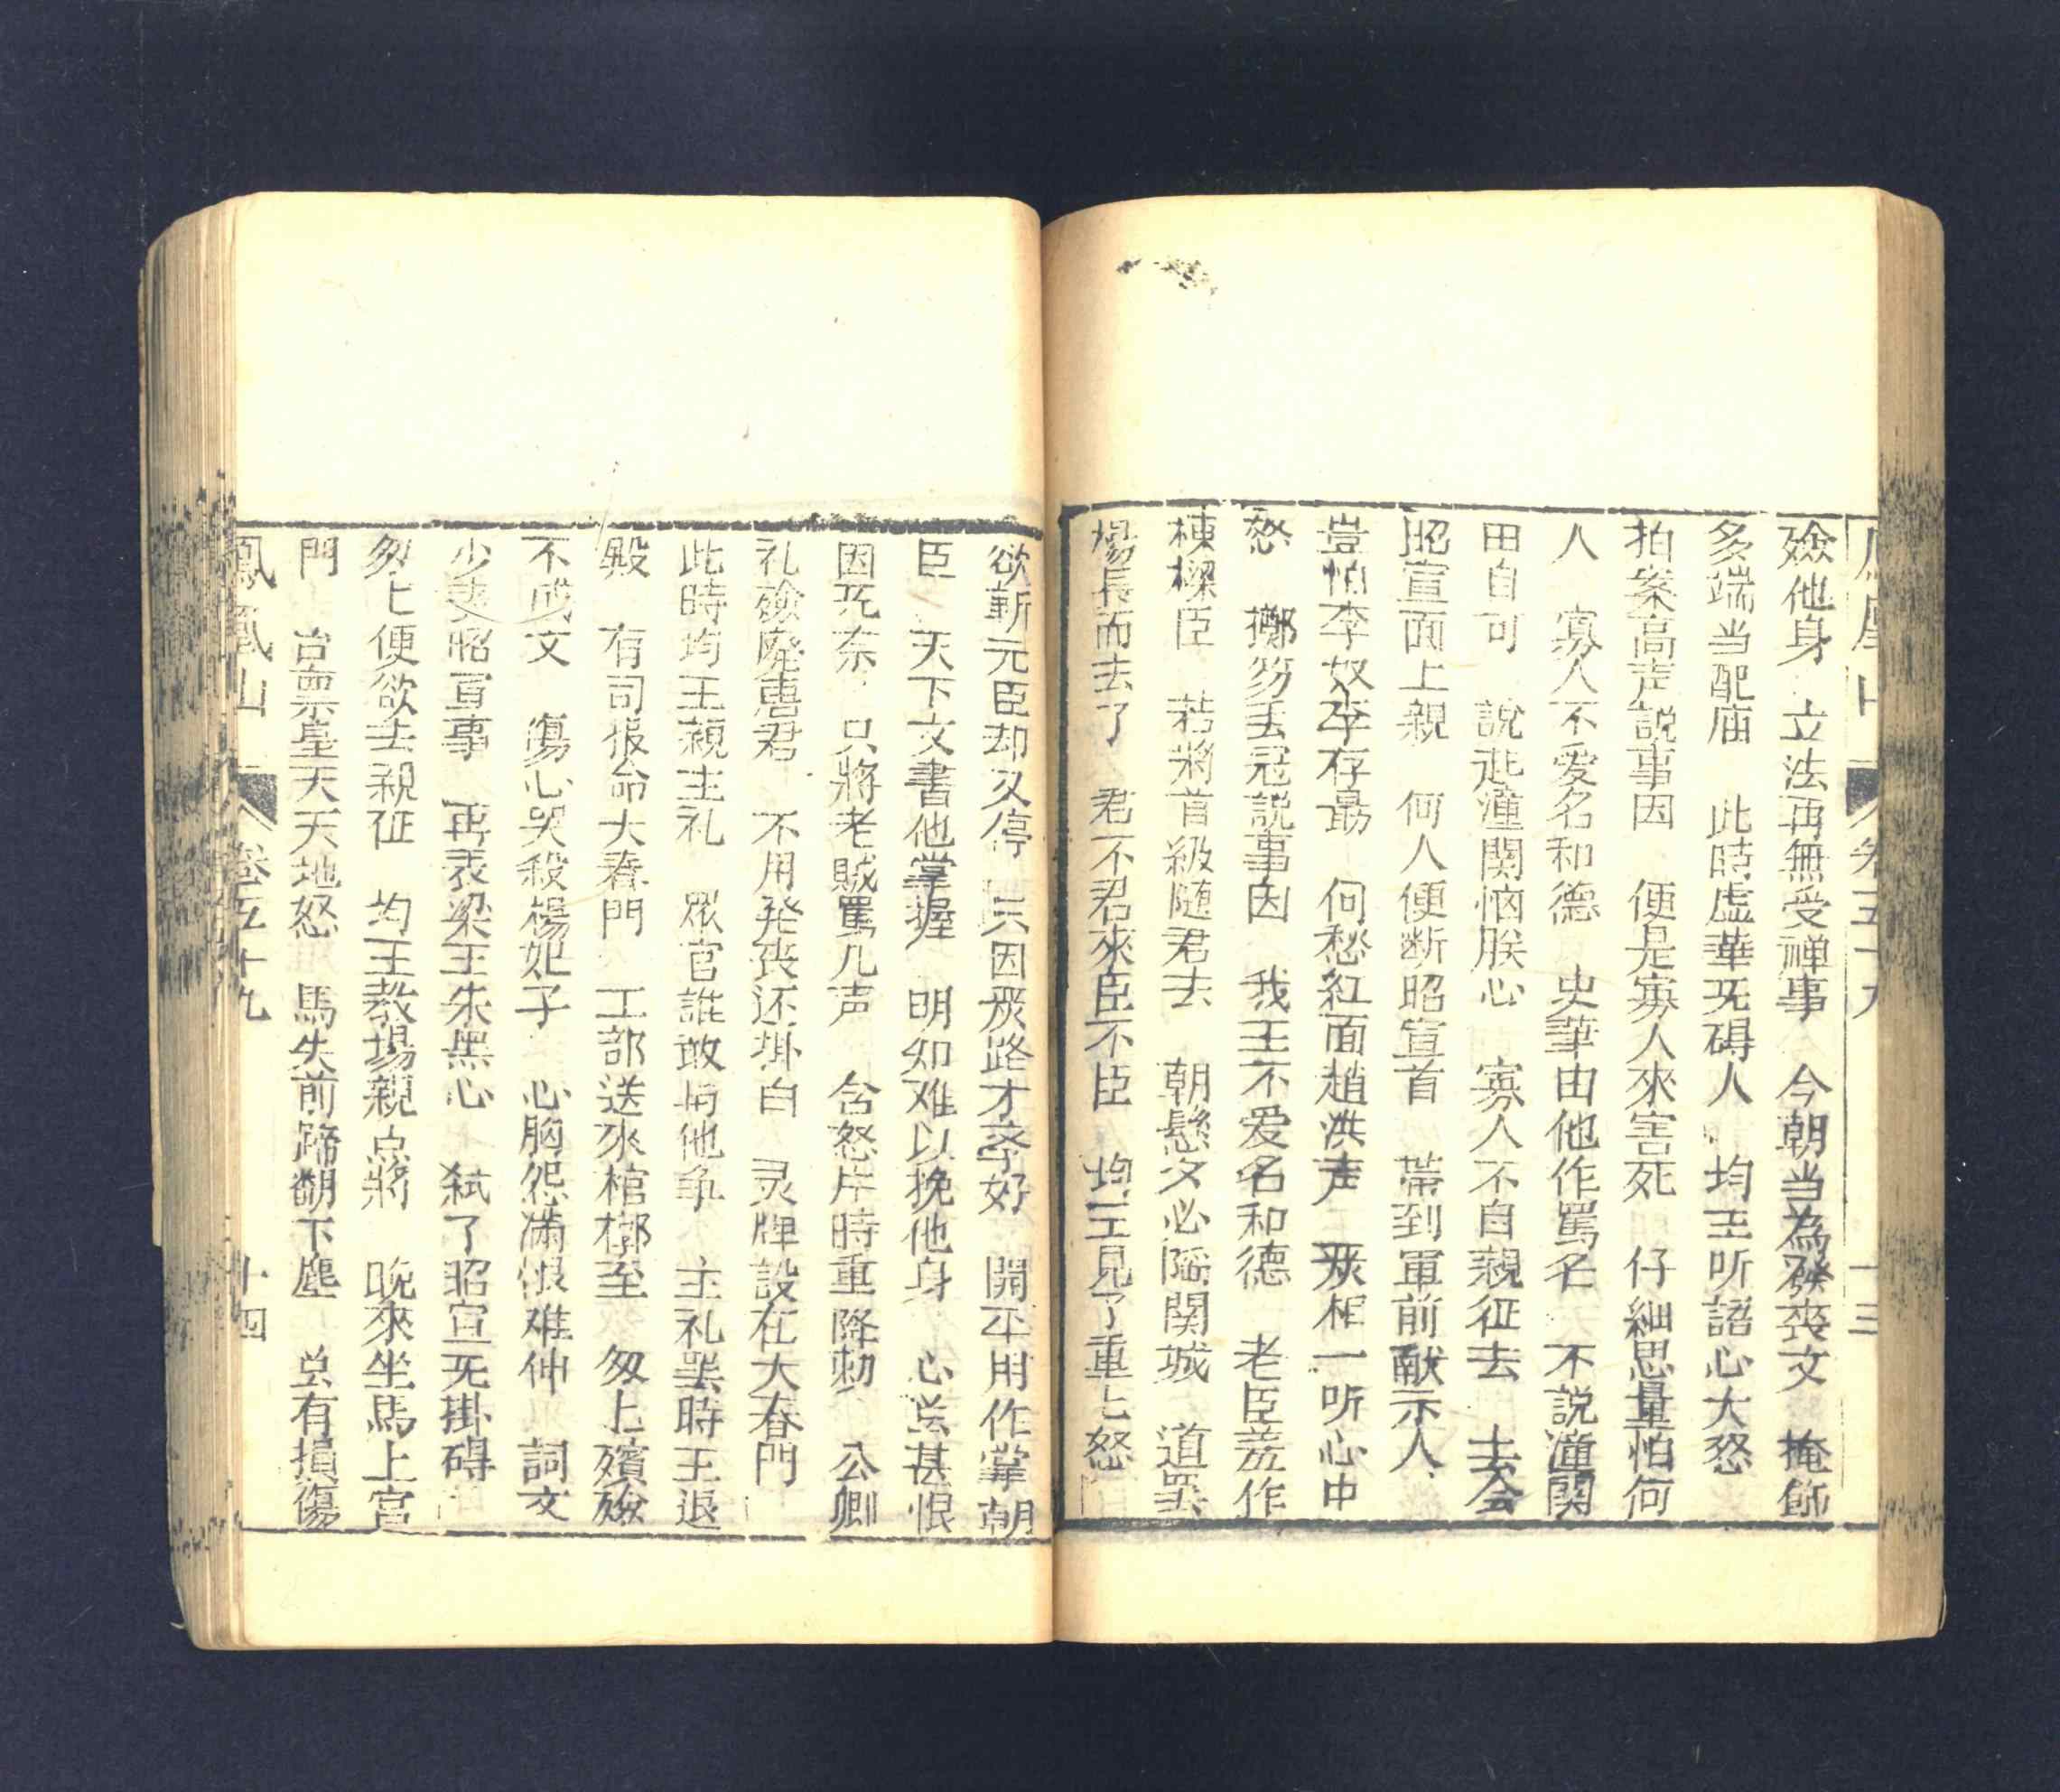 殮他身　立法再無受禅事　今朝当為發丧文　掩飾
多端当配庙　此時虚華旡碍人　均王听諮心大怒
拍案高声説事因　便是寡人來害死　仔細思量怕何
人　寡人不爱名和德　史華由他作罵名　不説潼関
田自可　說起潼関惱朕心　寡人不自親征去　去会
昭宣面上親　何人便断昭宣首　带到軍前献示人
豈怕李奴李存勗　何愁紅面趙洪声　丞相一听心中
怒　擲笏丢冠説事因　我王不爱名和德　老臣羞作
棟樑臣　若將首級随君去　朝懸夕必陷関城　道罢
揚長而去了　君不君來臣不臣　均王見了重七怒
欲斬元臣却又停　只因成路才学好　開平用作掌朝
臣　天下文書他掌握　明知难以挽他身　心並甚恨
因旡奈　只將老賊罵几声　含怒片時重降勅　公卿
礼殮廢唐君　不用発丧还掛白　灵牌設在大春門
此時均王親主礼　眾官誰敢与他争　主礼罢時王退
殿　有司报命大春門　工部送來棺槨至　匆匕殯殮
不成文　傷心哭殺楊妃子　心胸怨滿恨难伸　詞文
少表昭宣事　再表梁王朱黑心　弑了昭宣旡掛碍
匆七便欲去親征　均王教場親点將　晚來坐馬上宫
門　豈禀皇天天地怒　馬失前蹄翻下塵　总有損傷
鳳凰山　卷五十九　十四